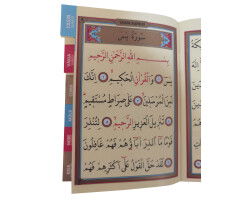 سورة يس
بسم الله الرحمن الرحيم
يس والقرآن الحكيم إنك
لمن المرسلين على صراط مستقيم
تنزيل العزيز الرحيم لتنذر
قوما ما أنذر آباؤهم فهم غافلون
لقد حق القول على أكثرهم فهم